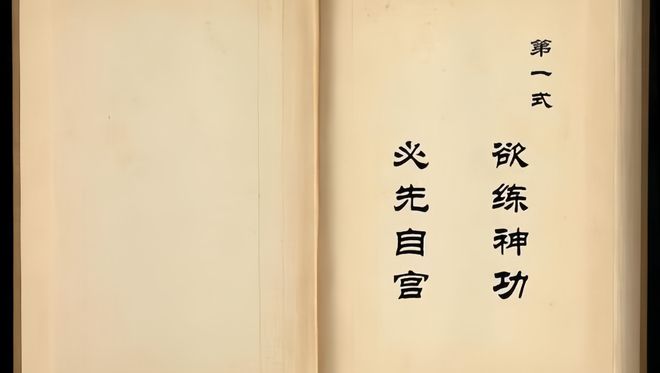 第一式
欲练神功
必先自宫